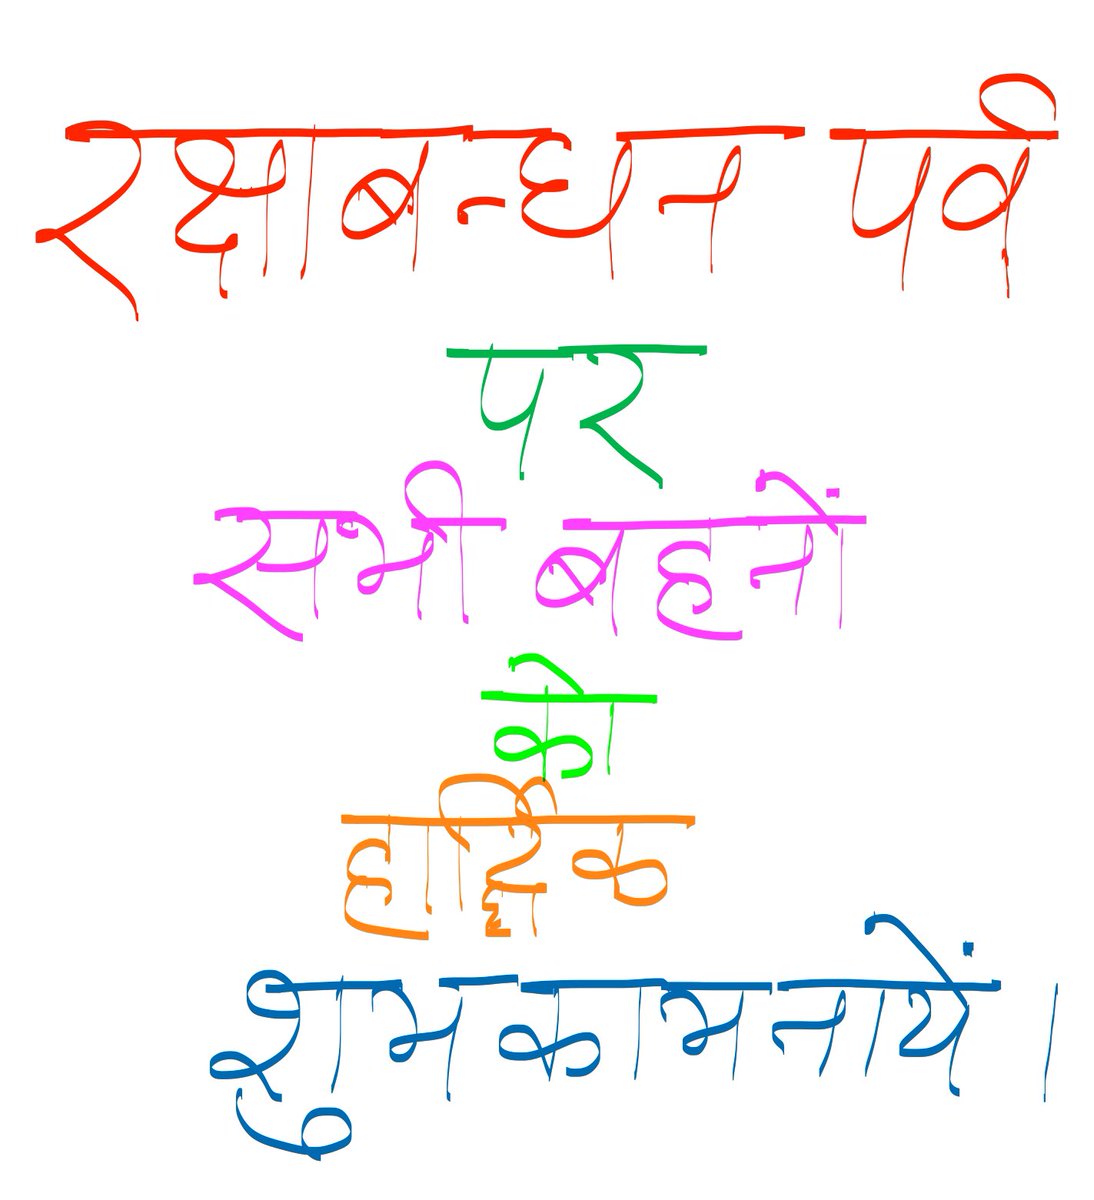 रक्षाबन्धन पर्व
पर
सभी बहनों
को
हार्द्दिक
शुभकामनायें ।